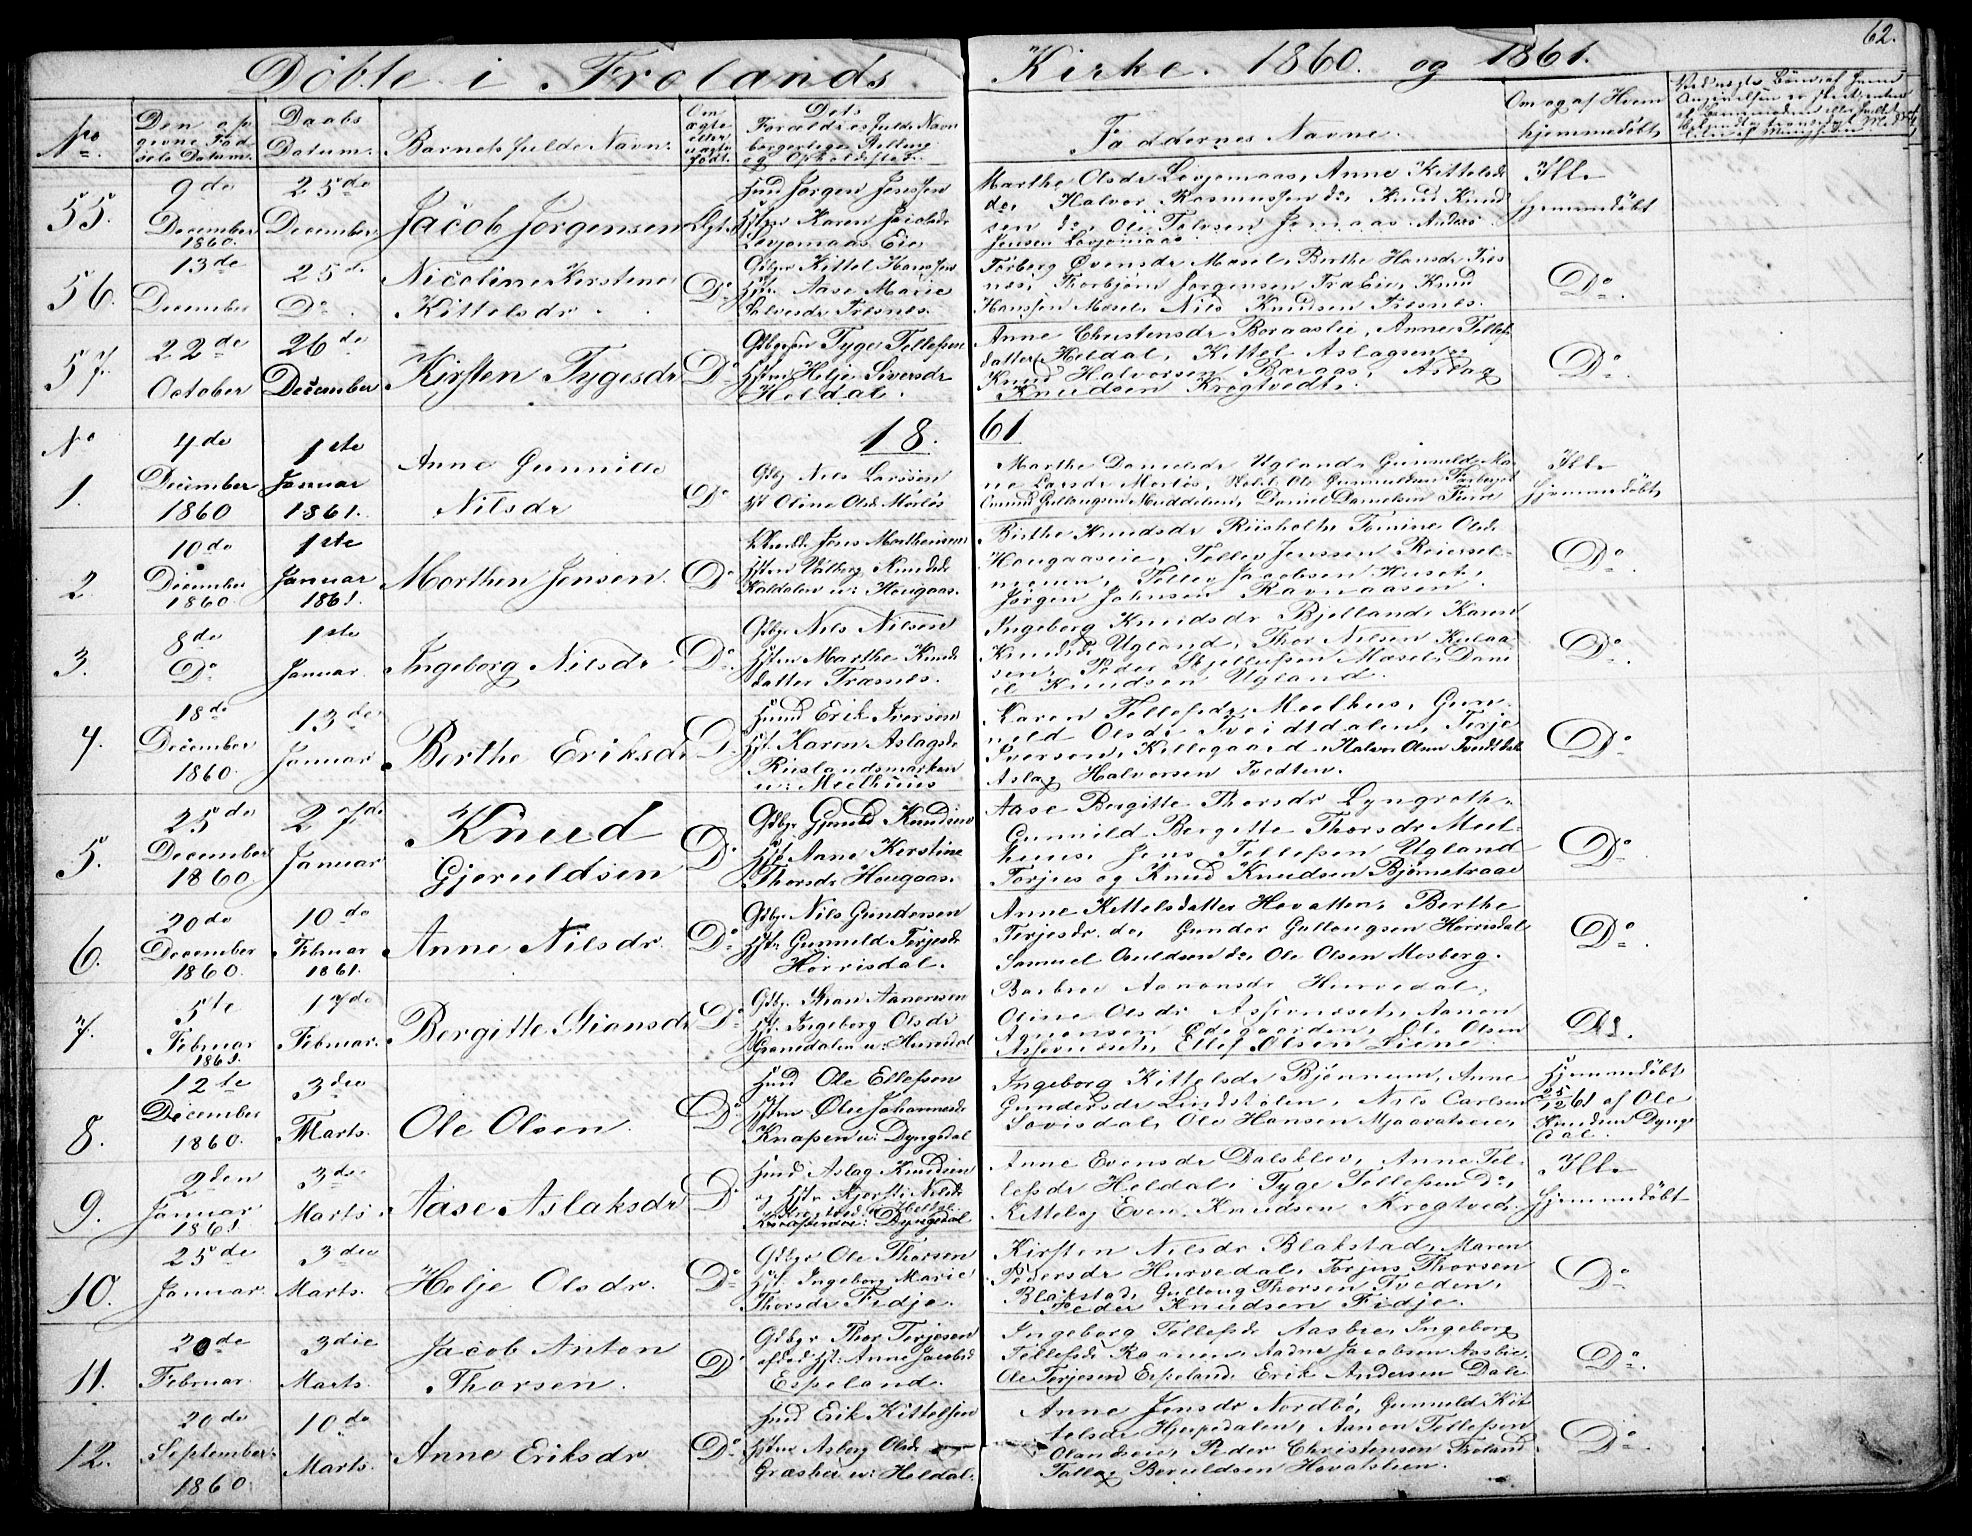 62.
Döbte i Frolands Kirke. 1860. og 1861.
No
Den op-
givne Föd-
sels Datum.
Daabs
Datum.
Barnets fulde Navn.
Om
ægte
eller
uægte
födt.
Dets
Forældres fulde Navn
borgerlige Stilling
og Opholdsted.
Faddernes Navne.
Om og af Hvem
hjemmedöbt,
55.
9de
December
1860.
25de
December
Jacob Jörgensen
Huusmd Jörgen Jenssen
Hstru Karen Jacobsdr
Lovjomaas Eie
Marthe Olsdr Lovjomaas, Anne Kittelsdr
do, Halvor Rasmussen do, Knud Knud
sen do, Ole Tolvsen Jomaas Anders
Jensen Lovjomaas
Ikke
hjemmedöbt
56.
13de
December
25de
Do.
Nicoline Kerstene
Kittelsdr.
Do
Gdbgr Kittel Hanssen
Hstr. Aase Marie
Salvesdr Træsnes.
Torberg Övensdr Mosel, Birthe Hansdr Træs
nes, Thorbjörn Jörgensen TraEie, Knud
Hanssen Mosel, Nils Knudsen Træsnes.
Do.
57.
22de
October
26de
December
Kirsten Tygesdr
Do
Gdbgr Tyge Tellefsen
Hstru Helje Siversdr
Heldal.
Anne Christensdr Boraaslie, Anne Tellefs
datter Heldal, Kittel Aslagsen
Knud Halvorsen Boraas, Aslag
Knudsen Krogtvedt.
Do.
No 1861
1.
4de
December
1860
1ste
Januar
1861.
Anne Gunnille
Nilsdr
Do
Gdbgr Nils Larssön
Hst Oline Olsdr Morlös
Marthe Danielsdr Ugland, Gunnild Ma-
ne Larsdr Morlös, Ole Gunnuldsen
Gullaugsen Daniel Danielsen
Ikke
hjemmedöbt,
2.
10de
December
1860.
1ste
Januar
1861.
Morthen Jensen.
Do
Jens Mortensen
Hstru Valborg Knudsdr
Kaldalen u: Hougaas.
Birthe Knudsdr Riisholt, Tomine Olsdr
Hougaaseie, Tellev Jenssen Reiersel-
moen, Tellev Jacobsen Huset,
Jörgen Johnsen Ravnaasen
Do.
3.
8de
Do.
1ste
Januar.
Ingeborg Nilsdr
Do.
Gdbgr Nils Nilsen
Hstru Marthe Knuds
datter Træsnes.
Ingeborg Knudsdr Bjelland, Karen
Knudsdr Ugland, Thor Nilsen Kulaa-
sen, Peder Kjellufsen Mosel, Dani
el Knudsen Ugland.
Do.
4.
18de
December
1860.
13de
Januar
Berthe Eriksdr
Do
Huusmd Erik Iversen
Hst. Karen Aslagsdr
Riislandsmarken
u: Meelhuus
Karen Tellefsdr Meelhus, Gun-
nild Olsdr Tveidtdalen, Terje
Iversen, Killegaard, Halvor Olsen Tveidtdal
Aslag Halvorsen Tvedten.
Do.
5.
25de
December
1860.
27de
Januar
Knud
Gjeruldsen
Do
Gdbgr Gjeruld Knudsen
Hst Anne Kerstine
Thorsdr Hougaas.
Aase Bergitte Thorsdr Lyngroth,
Gunnild Bergitte Thorsdr Meel-
huus, Jens Tellefsen Ugland
Torjus og Knud Knudsen Bjørnetraae
Do.
6.
20de
December
1860.
10de
Februar
1861.
Anne Nilsdr.
Do
Gdbgr Nils Gundersen
Hstr Gunnuld Terjesdr
Hörrisdal.
Anne Kittelsdatter Hovatten, Berthe
Terjesdr. do, Gunder Gullougsen Hörrisdal
Samuel Ouuldsen do Ole Olsen Mosberg.
Do.
7.
5te
Februar
1861.
17de
Februar.
Bergitte Stiansdr
Do
Gdbgr Stian Aanonsen
Hst. Ingeborg Olsdr
Granedalen u: Hurvedal
Barbroe Aanonsdr Hurvedal,
Oline Olsdr Assevaset, Aanon
Agnonsen Ödegaarden, Ole Olsen
Assevaset, Ellef Olsen Liene.
Do.
8.
12te
December
1860.
3die
Marts.
Ole Olsen.
Do
Hmd Ole Ellefsen
Hstru Ölie Johannesdr
Knapen u: Dyngsdal
Ingeborg Kittelsdr Bjönnum, Anne
Gundersdr Lindstölen, Nils Carlsen
Sovisdal, Ole Hansen Mjaavatseie.
Hjemmedöbt
25/12 61 af Ole
Knudsen Dyngs
dal.
9.
2den
Januar
1861
3die
Marts.
Aase Aslaksdr
Do
Hmd Aslag Knudsen
og Hstr Kjersti Nilsdr
Krogtved u: Heldal
Knapen u: Dyngsdal
Anne Evensdr Dalsklev, Anne Tel-
lefsdr Heldal, Tyge Tellefsen Do,
Kittel og Even Knudsen Krogtved.
Ikke
hjemmedöbt
10.
25de
Januar.
3die
Marts.
Helje Olsdr.
Do
Gdbgr Ole Thorsen
Hst. Ingeborg Marie
Thorsdr Fidje.
Kirsten Nilsdr Blakstad, Maren
Pedersdr Hurvedal, Torjus Thorsen
Blakstad, Gulloug Thorsen Tveden,
Peder Knudsen Fidje.
Do
11.
20de
Februar.
3die
Marts.
Jacob Anton
Thorsen.
Do
Gdbgr Thor Terjesen
afdöd Hst: Anne Jacobsd
Espeland.
Ingeborg Tellefsdr Aasbie, Ingeborg
Tellefsdr Raanes, Aadne Jacobsen Aasbie,
Ole Terjesen Espeland, Erik Andersen Dale
Do.
12.
20de
September.
1860
10de
Marts.
Anne Eriksdr.
Do.
Hmd Erik Kittelsen
Hstru Asberg Olsdr
Græsheia u: Heldal.
Anne Jensdr Nordbö, Gunnuld Kit
telsdr Hjerpedalen, Aanon Tellefsen
Olandseie, Peder Christensen Froland
Tallag Beruldsen Hovatslien.
Do.